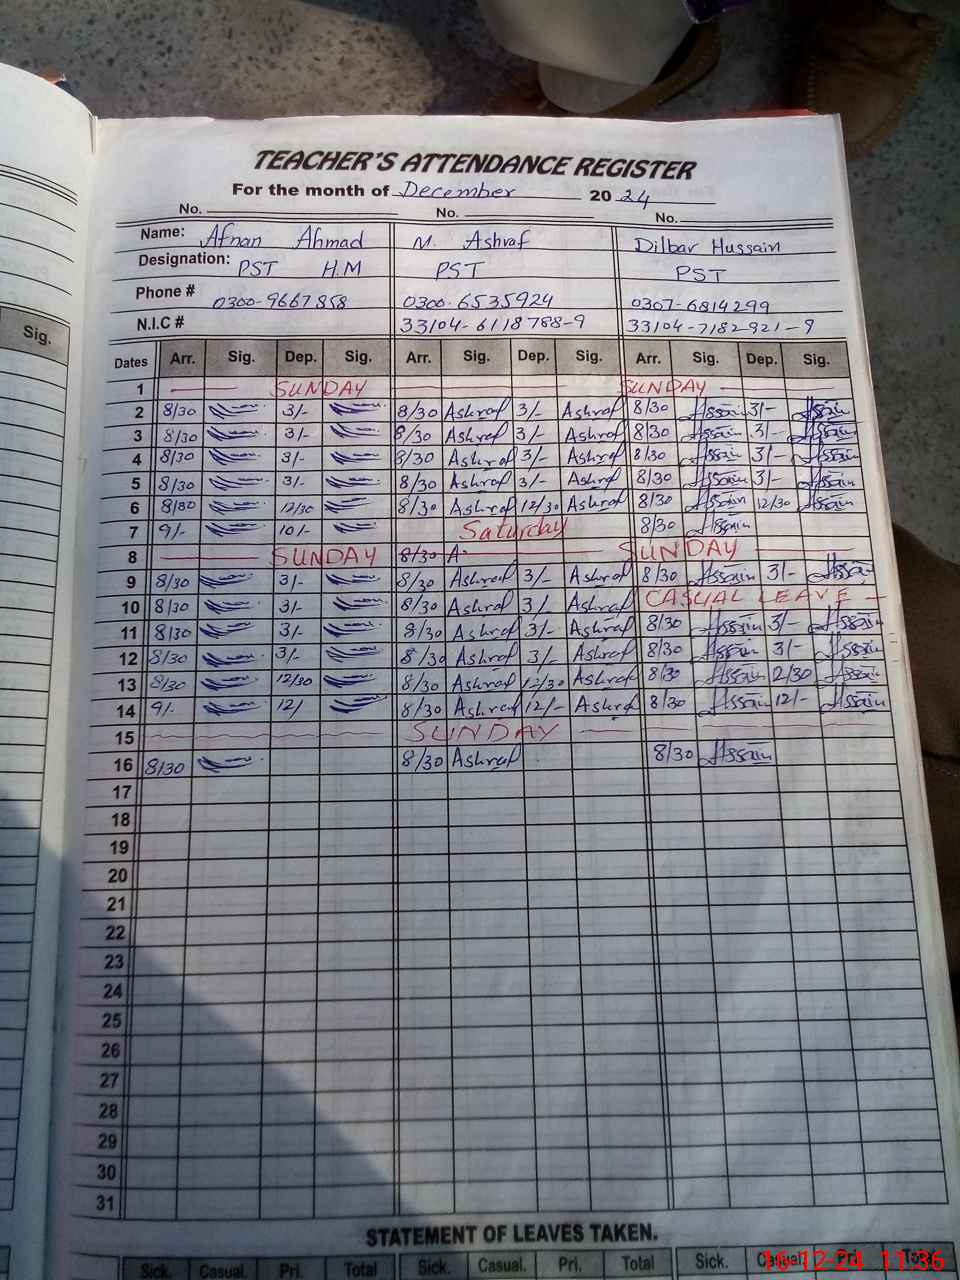 TEACHER'S ATTENDANCE REGISTER
For the month of December 2024
No. No. No.
Name: Afnan Ahmad M. Ashraf Dilbar Hussain
Designation: PST H.M PST PST
Phone # 0300-9667858 0300-6535924 0307-6814299
N.I.C # 33104-6118788-9 33104-7182921-9
Sig.
Dates Arr. Sig. Dep. Sig. Arr. Sig. Dep. Sig. Arr. Sig. Dep. Sig.
1 SUNDAY SUNDAY
2 8/30 3/- 8/30 Ashraf 3/- Ashraf 8/30 Hssain 3/- Hssain
3 8/30 3/- 8/30 Ashraf 3/- Ashraf 8/30 Hssain 3/- Hssain
4 8/30 3/- 8/30 Ashraf 3/- Ashraf 8/30 Hssain 3/- Hssain
5 8/30 3/- 8/30 Ashraf 3/- Ashraf 8/30 Hssain 3/- Hssain
6 8/30 12/30 8/30 Ashraf 12/30 Ashraf 8/30 Hssain 12/30 Hssain
7 9/- 10/- Saturday 8/30 Hssain
8 SUNDAY 8/30 A SUNDAY
9 8/30 3/- 8/30 Ashraf 3/- Ashraf 8/30 Hssain 3/- Hssain
10 8/30 3/- 8/30 Ashraf 3/- Ashraf CASUAL LEAVE
11 8/30 3/- 8/30 Ashraf 3/- Ashraf 8/30 Hssain 3/- Hssain
12 8/30 3/- 8/30 Ashraf 3/- Ashraf 8/30 Hssain 3/- Hssain
13 8/30 12/30 8/30 Ashraf 12/30 Ashraf 8/30 Hssain 2/30 Hssain
14 9/- 12/ 8/30 Ashraf 12/- Ashraf 8/30 Hssain 12/- Hssain
15 SUNDAY
16 8/30 8/30 Ashraf 8/30 Hssain
17
18
19
20
21
22
23
24
25
26
27
28
29
30
31
STATEMENT OF LEAVES TAKEN.
Sick. Casual. Pri. Total Sick. Casual. Pri. Total Sick. Casual. Pri.
16-12-24 11:36